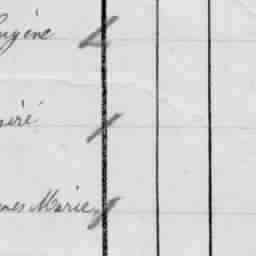 ugène
siré
nes Marie